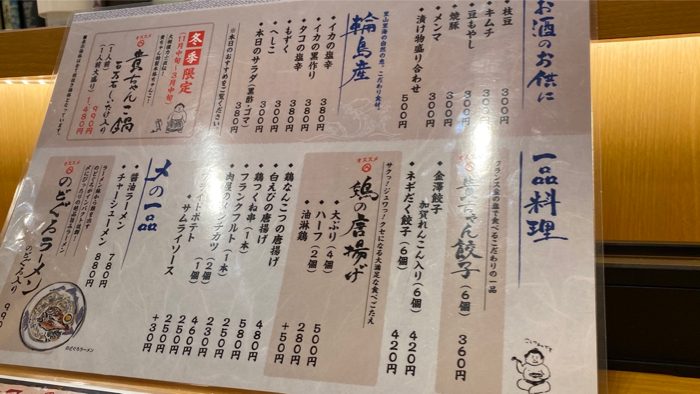 お酒のお供に
・枝豆 300円
・キムチ 300円
・豆もやし 300円
・焼豚 300円
・メンマ 300円
・漬け物盛り合わせ 500円
里山里海の自然の恵、こだわり食材。
輪島産
・イカの塩辛 380円
・イカの黒作り 380円
・タコの塩辛 380円
・もずく 300円
・へしこ 300円
・本日のサラダ(黒酢/ゴマ) 300円
※本日のおすすめをご覧ください。
冬季限定
(11月中旬～3月中旬)
オススメ
貴ちゃんこ鍋
石石石しいたけ入り
(1人前) 990円
(1人前大盛り) 1,480円
一品料理
フランス金の塩で食べるこだわりの一品
オススメ
貴ちゃん餃子(6個) 360円
・金澤餃子
加賀れんこん入り(6個) 420円
・ネギだく餃子(6個) 420円
サクッ!ジュワっ!クセになる大満足な食べごたえ
オススメ
鶏の唐揚げ
・大ぶり(4個) 500円
・ハーフ(2個) 280円
・油淋鶏 +50円
・鶏なんこつの唐揚げ 480円
・白えびの唐揚げ 680円
・鶏つくね串(1本) 250円
・フランクフルト(1本) 280円
(2個) 230円
(1個) 460円
フライドポテト 250円
・サムライソース +30円
〆の一品
・醤油ラーメン 780円
・チャーシューメン 880円
オススメ
のどぐろラーメン
のどぐろ入り
990
のどぐろラーメン
ごっつぁんです